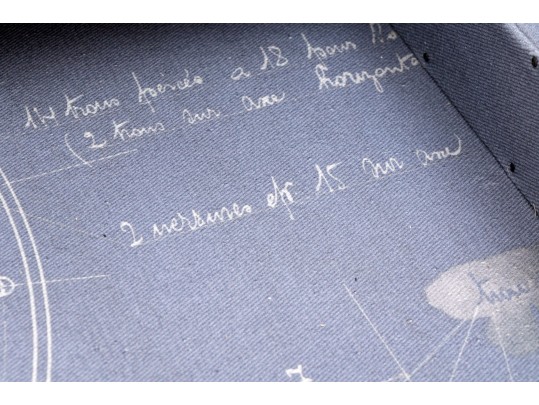 14 trous percés a 18 pour
(2 trous sur axe horizonta
2 nervures ep. 15 sur axe
7